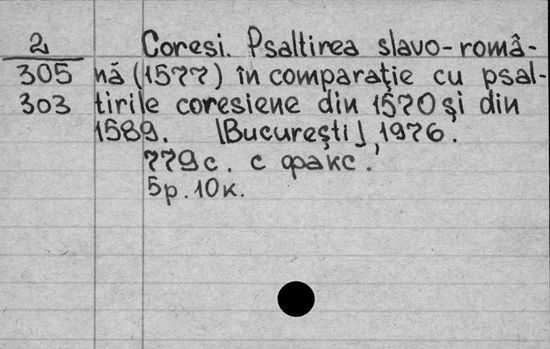 2 Coresi. Psaltirea slavo-româ-
305 nă (1577) în comparaţie cu psal-
303 tirile coresiene din 1570 şi din
1589. [Bucureşti], 1976.
779 с. с факс.
5р. 10к.